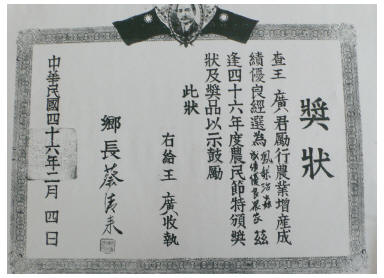 獎狀
查王 廣君勵行農業增産成
績優良經選為鳳梨增産
成績優良農家 茲
逢四十六年度農民節特頒獎
狀及獎品以示鼓勵
此狀
右給王 廣收執
鄉長蔡
中華民國四十六年二月四日